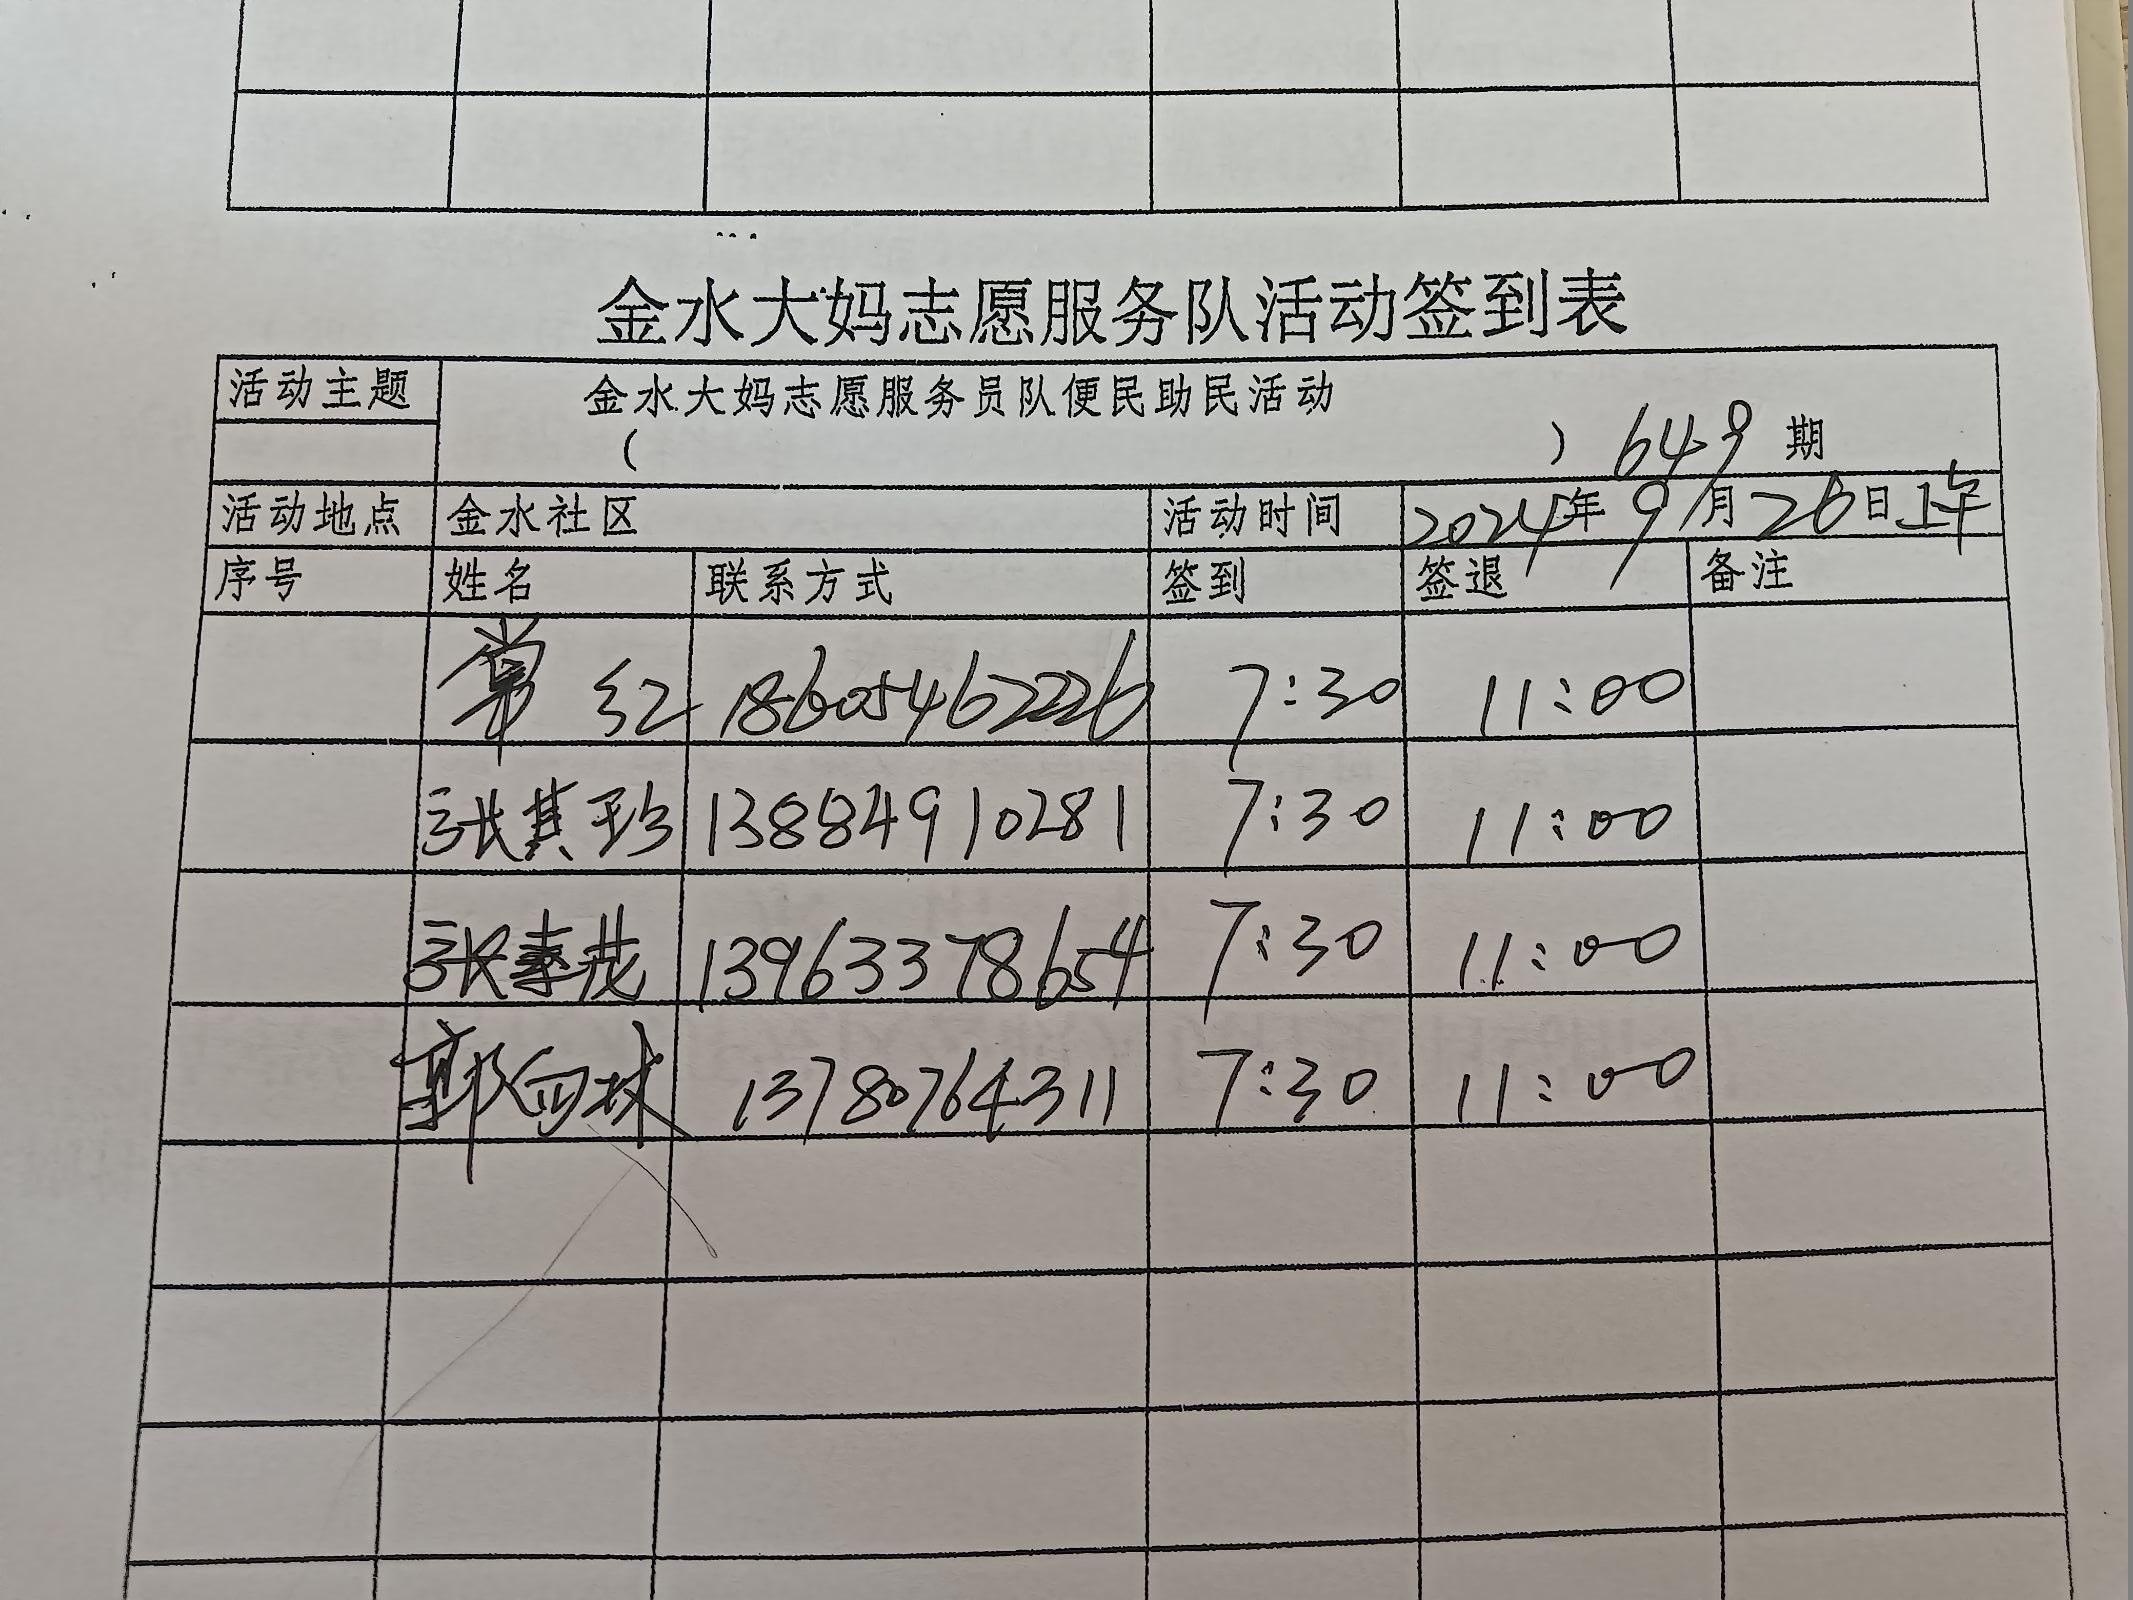 金水大妈志愿服务队活动签到表
活动主题 金水大妈志愿服务员队便民助民活动
( ) 649 期
活动地点 金水社区 活动时间 2024年9月26日上午
序号 姓名 联系方式 签到 签退 备注
常红 18605462226 7:30 11:00
张其珍 13884910281 7:30 11:00
张素茂 13963378654 7:30 11:00
郭向林 13780764311 7:30 11:00